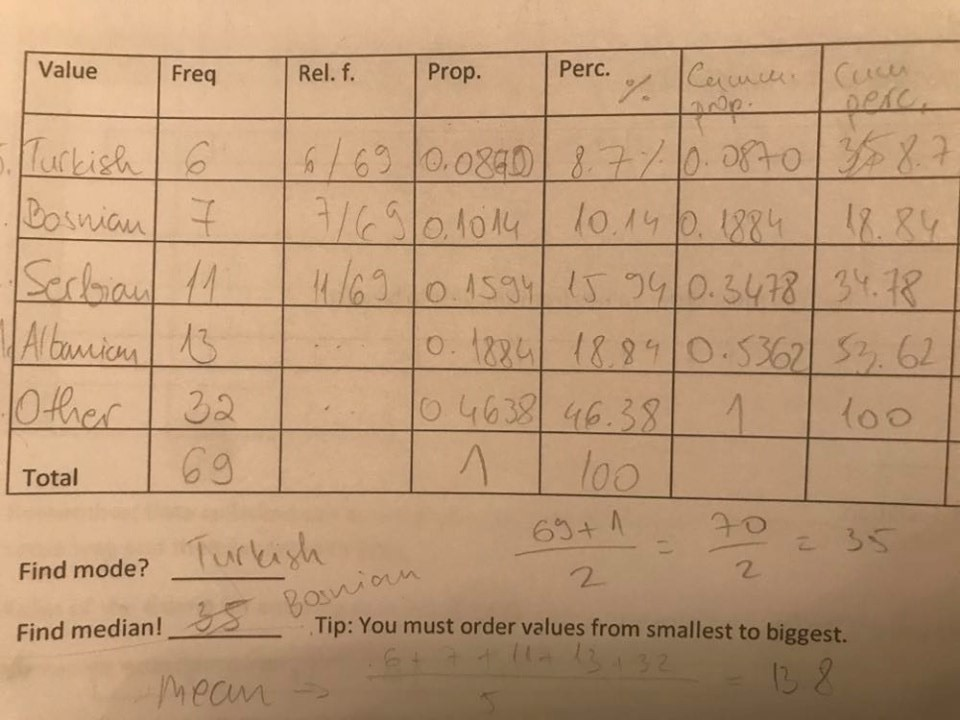 Value Freq Rel. f. Prop. Perc. % Cumm. prop. Cum perc.
Turkish 6 6/69 0.0870 8.7% 0.0870 8.7
Bosnian 7 7/69 0.1014 10.14 0.1884 18.84
Serbian 11 11/69 0.1594 15.94 0.3478 34.78
Albanian 13 ... 0.1884 18.84 0.5362 53.62
Other 32 .. 0.4638 46.38 1 100
Total 69 1 100
69+1 / 2 = 70 / 2 = 35
Find mode? Turkish
Find median! 35 Bosnian Tip: You must order values from smallest to biggest.
Mean → 6+7+11+13+32 / 5 = 13.8